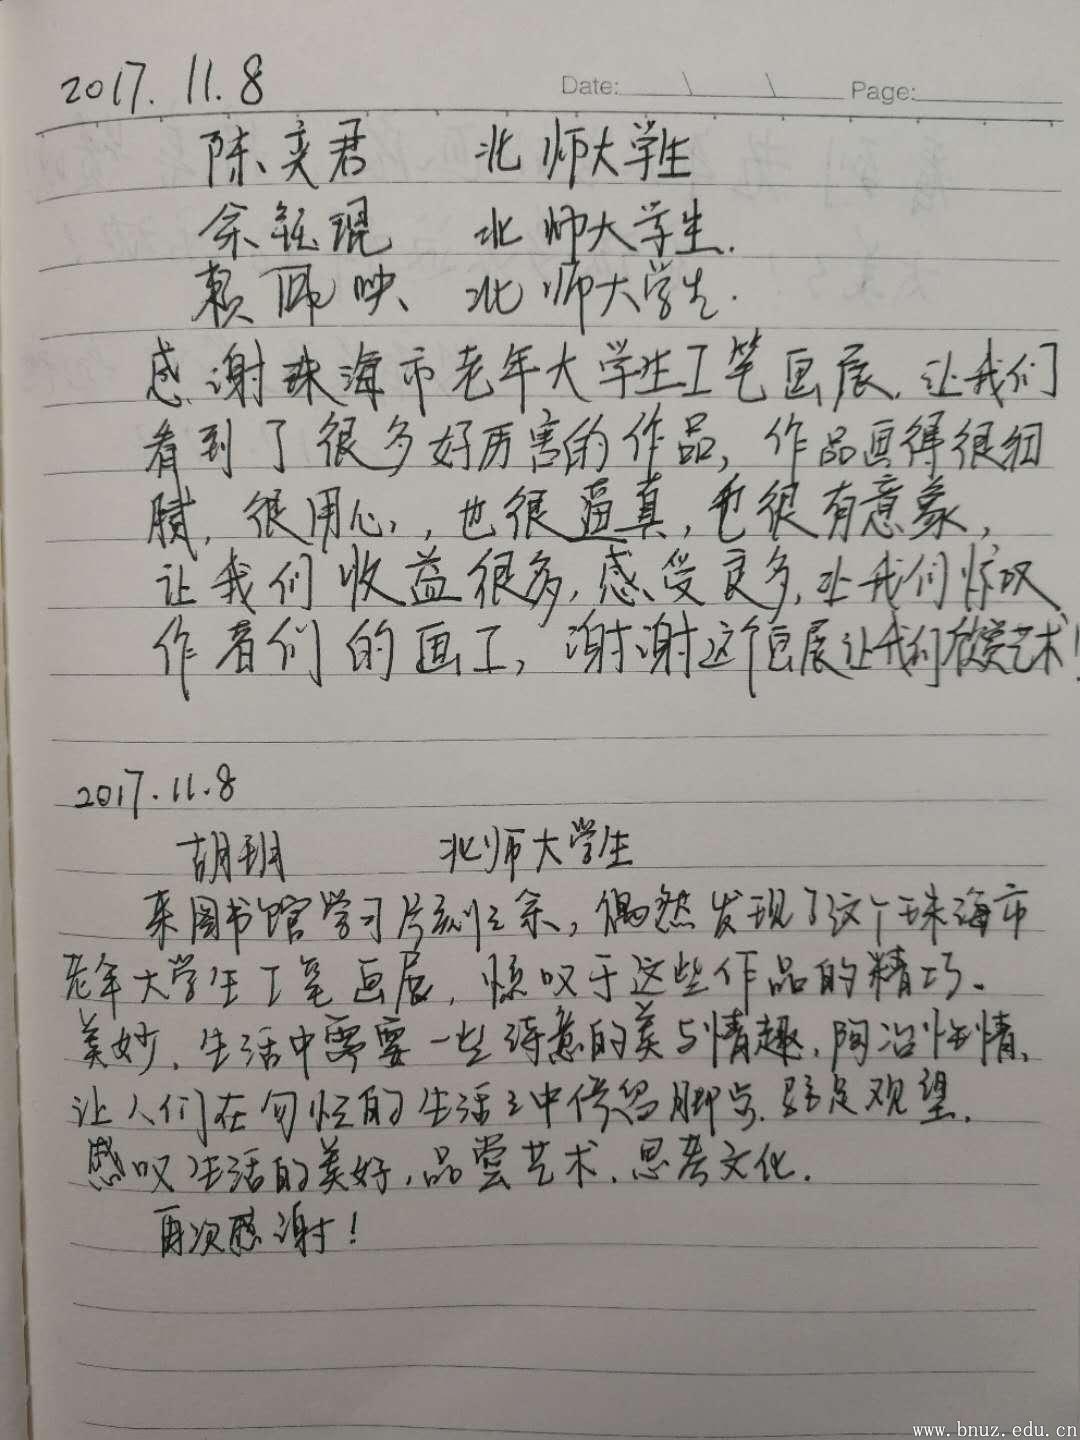 2017.11.8
Date: \ \ Page:
陈奕君 北师大学生
余 琨 北师大学生.
赖 映 北师大学生.
感谢珠海市老年大学学生工笔画展,让我们
看到了很多好厉害的作品,作品画得很细
腻,很用心,也很逼真,也很有意象,
让我们收益很多,感受良多,让我们惊叹
作者们的画工,谢谢这个画展让我们欣赏艺术!
2017.11.8
胡玥 北师大学生
来图书馆学习片刻之余,偶然发现了这个珠海市
老年大学学生工笔画展,惊叹于这些作品的精巧、
美妙,生活中需要一些诗意的美与情趣,陶冶性情,
让人们在匆忙的生活之中停留脚步,驻足观望,
感叹生活的美好,品尝艺术,思考文化.
再次感谢!
www.bnuz.edu.cn